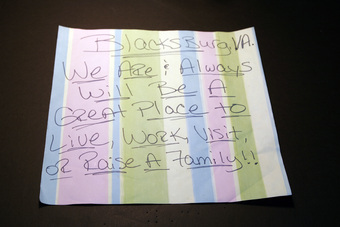 Blacksburg, VA.
We Are & Always
Will Be A
Great Place to
Live, Work, Visit,
or Raise A Family!!